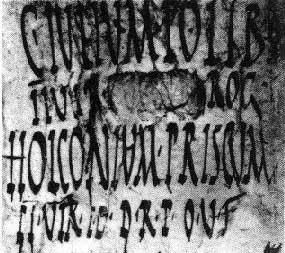 C·IVLIVM·POLYB
IIVIR ROG
HOLCONIVM·PRISCVM
II·VIR·I·D·D·R·P·O·V·F